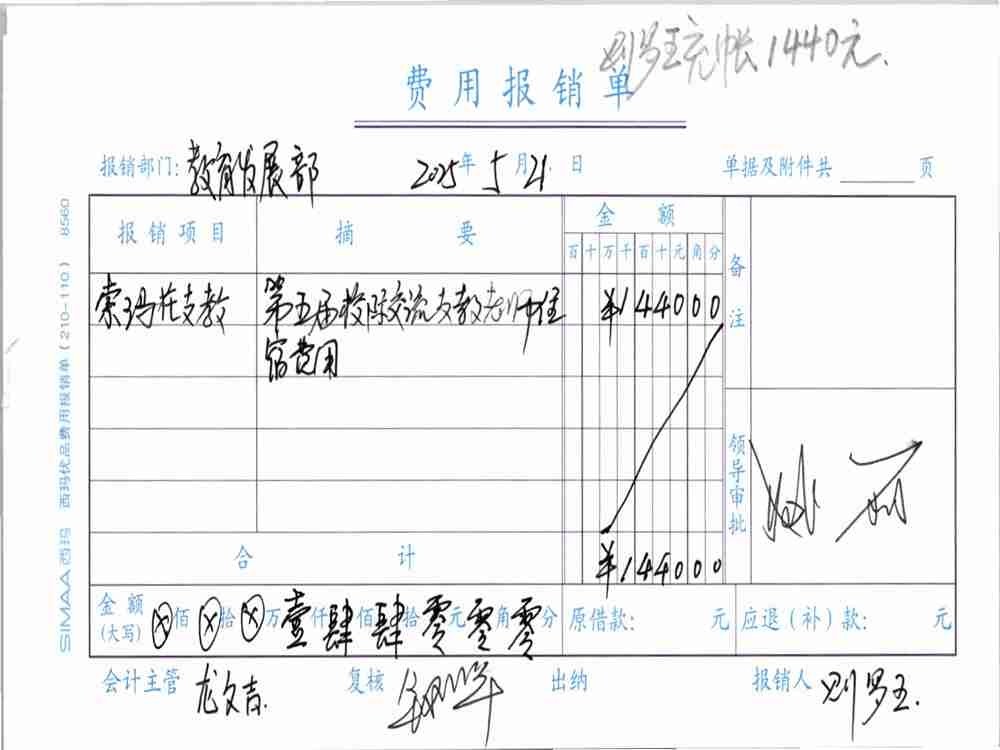 则罗王充帐1440元.
费用报销单
报销部门: 教育发展部 2025年5月21日 单据及附件共 页
报销项目 摘要 金额 备注
百十万千百十元角分
索玛花支教 第五届校际交流支教老师住 ¥144000
宿费用
领导审批
合计 ¥144000
金额(大写) ⊗佰⊗拾⊗万壹仟肆佰肆拾零元零角零分 原借款: 元 应退(补)款: 元
会计主管 龙文吉. 复核 出纳 报销人 则罗王.
SIMAA西玛 西玛优品费用报销单(210-110) 8560